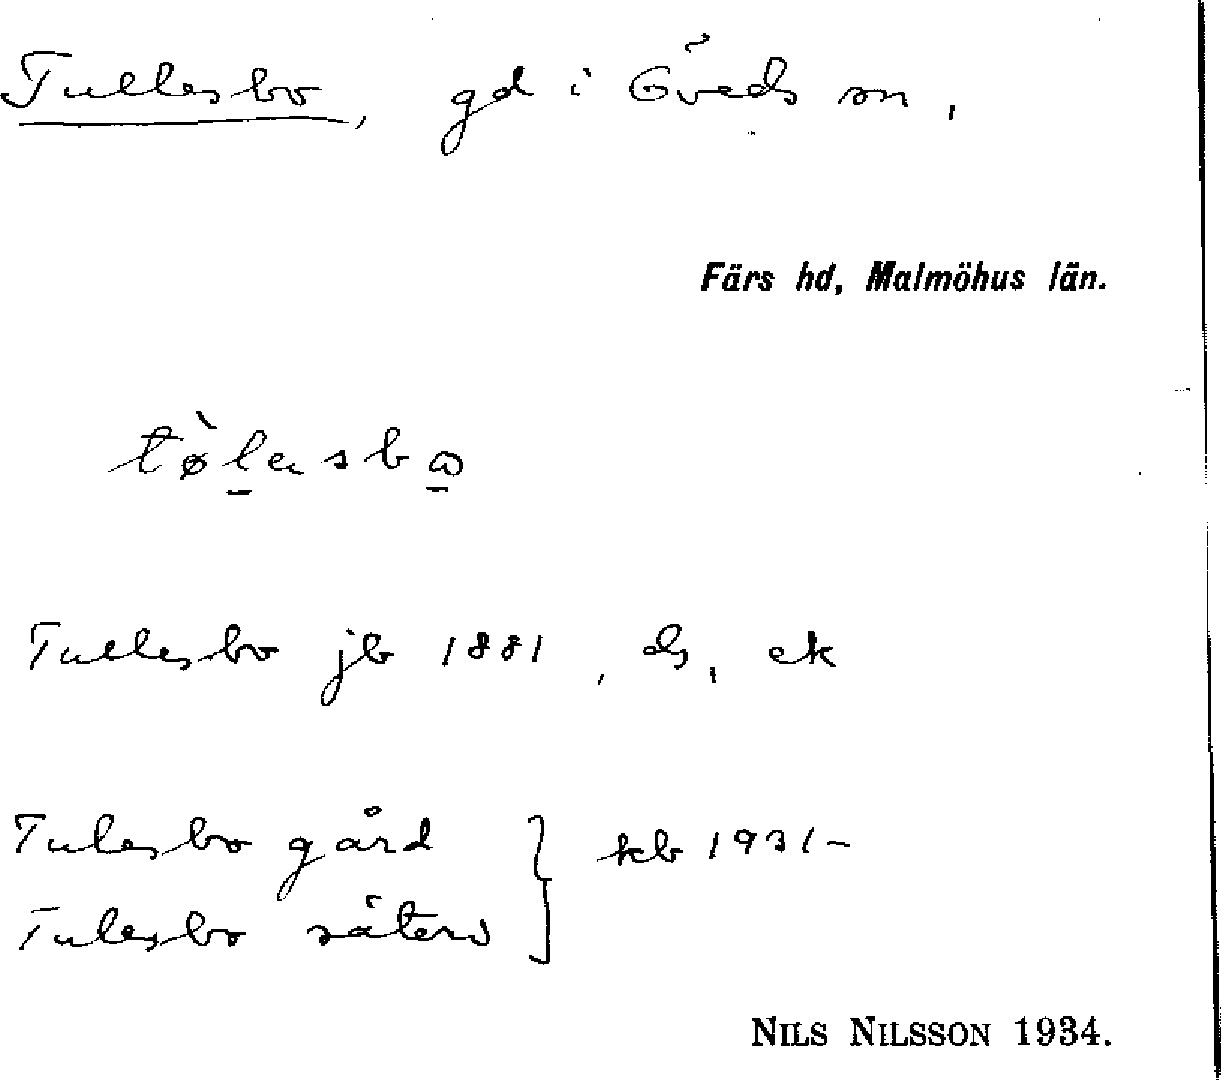 Tullesbo, gd i Öveds sn,
Färs hd, Malmöhus län.
Tullesbo jb 1881, ds, ek
Tulesbo gård } kb 1931–
Tulesbo säteri
NILS NILSSON 1934.